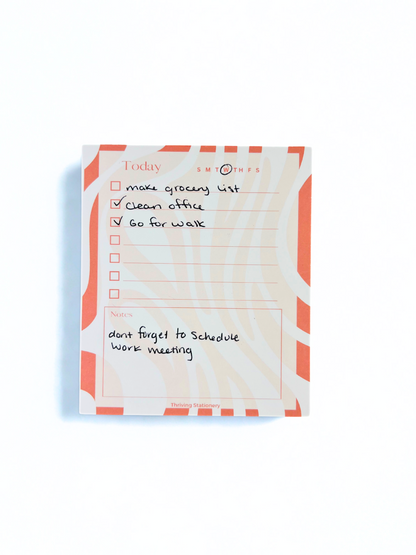 Today
S M T W T H F S
make grocery list
Clean office
Go for walk
Notes
dont forget to Schedule
Work meeting
Thriving Stationery